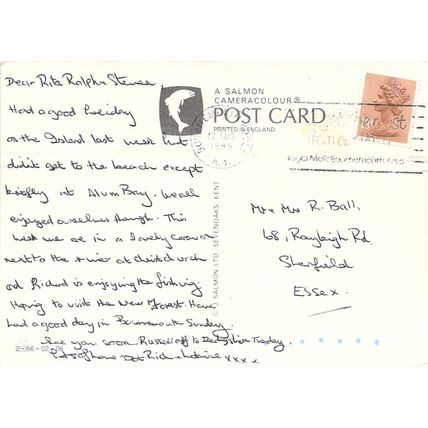 Dear Rita Ralph & Steven
Had a good holiday
on the Island last week but
didn't get to the beach except
briefly at Alum Bay. We all
enjoyed ourselves though. This
week we are in a lovely caravan
next to the river at Christchurch
and Richard is enjoying the fishing.
Hoping to visit the New Forest. Have
had a good day in Bournemouth Sunday.
See you soon. Russell off to Derbyshire Tuesday.
Lots of love Dot Rich
xxxx
A SALMON
CAMERACOLOUR®
POST CARD
PRINTED IN ENGLAND
© J SALMON LTD. SEVENOAKS, KENT
1985
Mr & Mrs R. Ball.
68, Rayleigh Rd.
Essex.